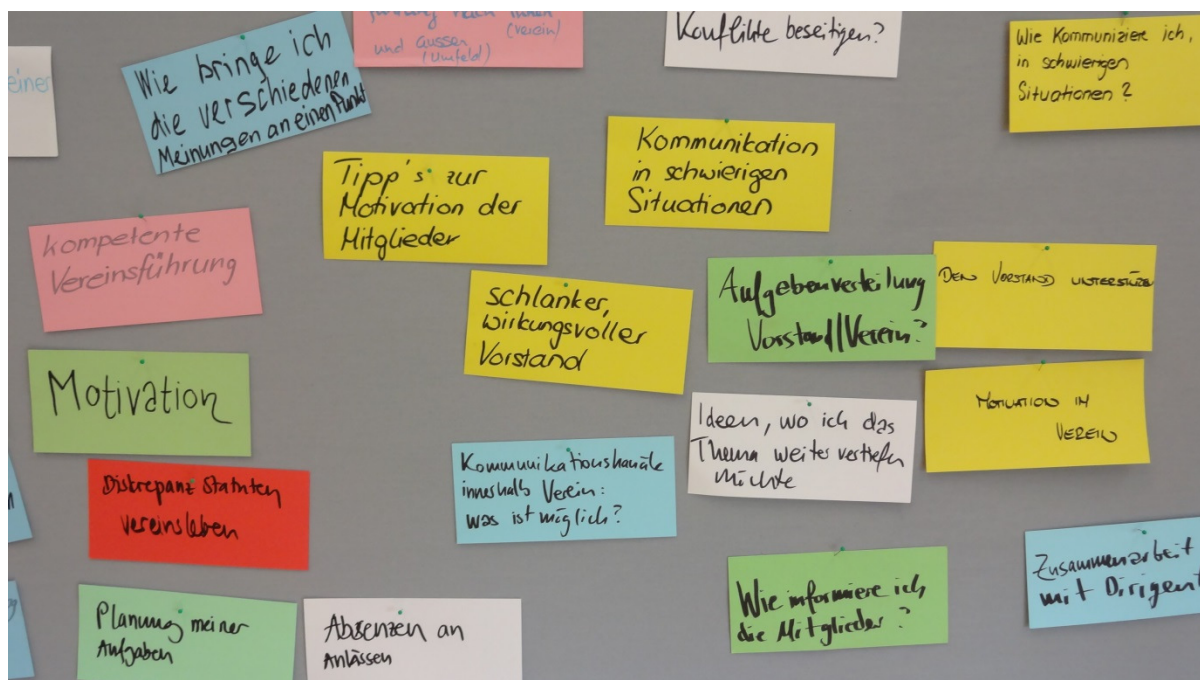 einer
Wie bringe ich
die verschiedenen
Meinungen an einen Punkt
nach innen
(verein)
und aussen
(Umfeld)
Konflikte beseitigen?
Wie Kommuniziere ich,
in schwierigen
Situationen?
Tipp's zur
Motivation der
Mitglieder
Kommunikation
in schwierigen
Situationen
kompetente
Vereinsführung
schlanker,
wirkungsvoller
Vorstand
Aufgebenverteilung
Vorstand/Verein?
DEN VORSTAND UNTERSTÜZEN
Motivation
Ideen, wo ich das
Thema weiter vertiefen
möchte
MOTIVATION IM
VEREIN
Diskrepanz Statuten
Vereinsleben
Kommunikationskanäle
innerhalb Verein:
was ist möglich?
Planung meiner
Aufgaben
Absenzen an
Anlässen
Wie informiere ich
die Mitglieder?
Zusammenarbeit
mit Dirigent